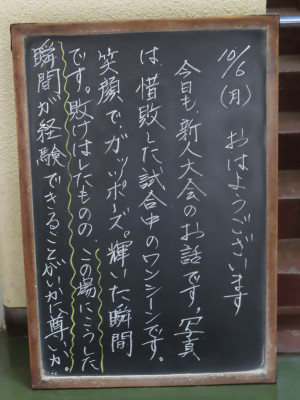 10/6(月) おはようございます
今日も、新人大会のお話です。写真
は、惜敗した試合中のワンシーンです。
笑顔で、ガッツポーズ。輝いた瞬間
です。敗けはしたものの、この場に、こうした
瞬間が経験できることがいかに尊いか。